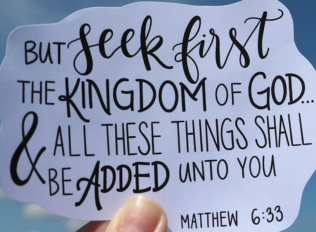 BUT seek first
THE KINGDOM OF GOD...
& ALL THESE THINGS SHALL
BE ADDED UNTO YOU
MATTHEW 6:33